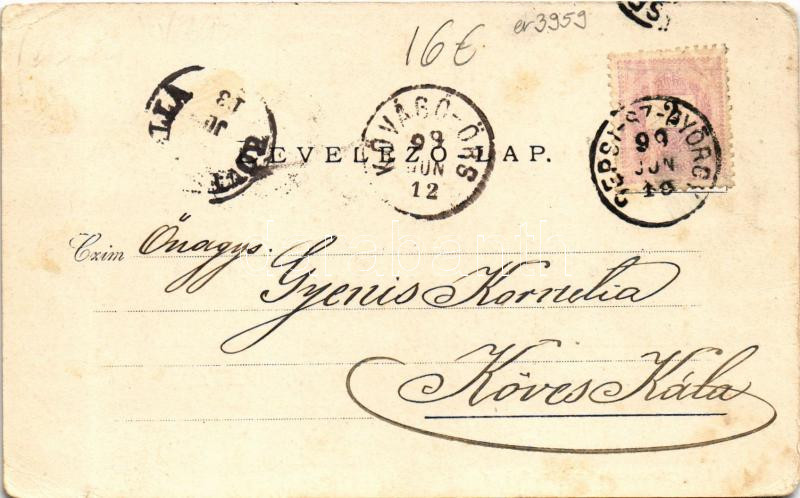 16€ er3959
KŐVÁGÓ-ÖRS
99
JUN
12
SEPSI-SZ-GYÖRGY
99
JUN
10
LEVELEZŐ-LAP.
Czim Önagys.
Gyenis Kornelia
Köves Kála